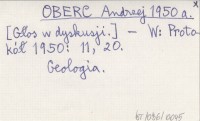 OBERC Andrzej 1950 a. x
[Głos w dyskusji.] – W: Proto
kół 1950: 11, 20.
Geologia.